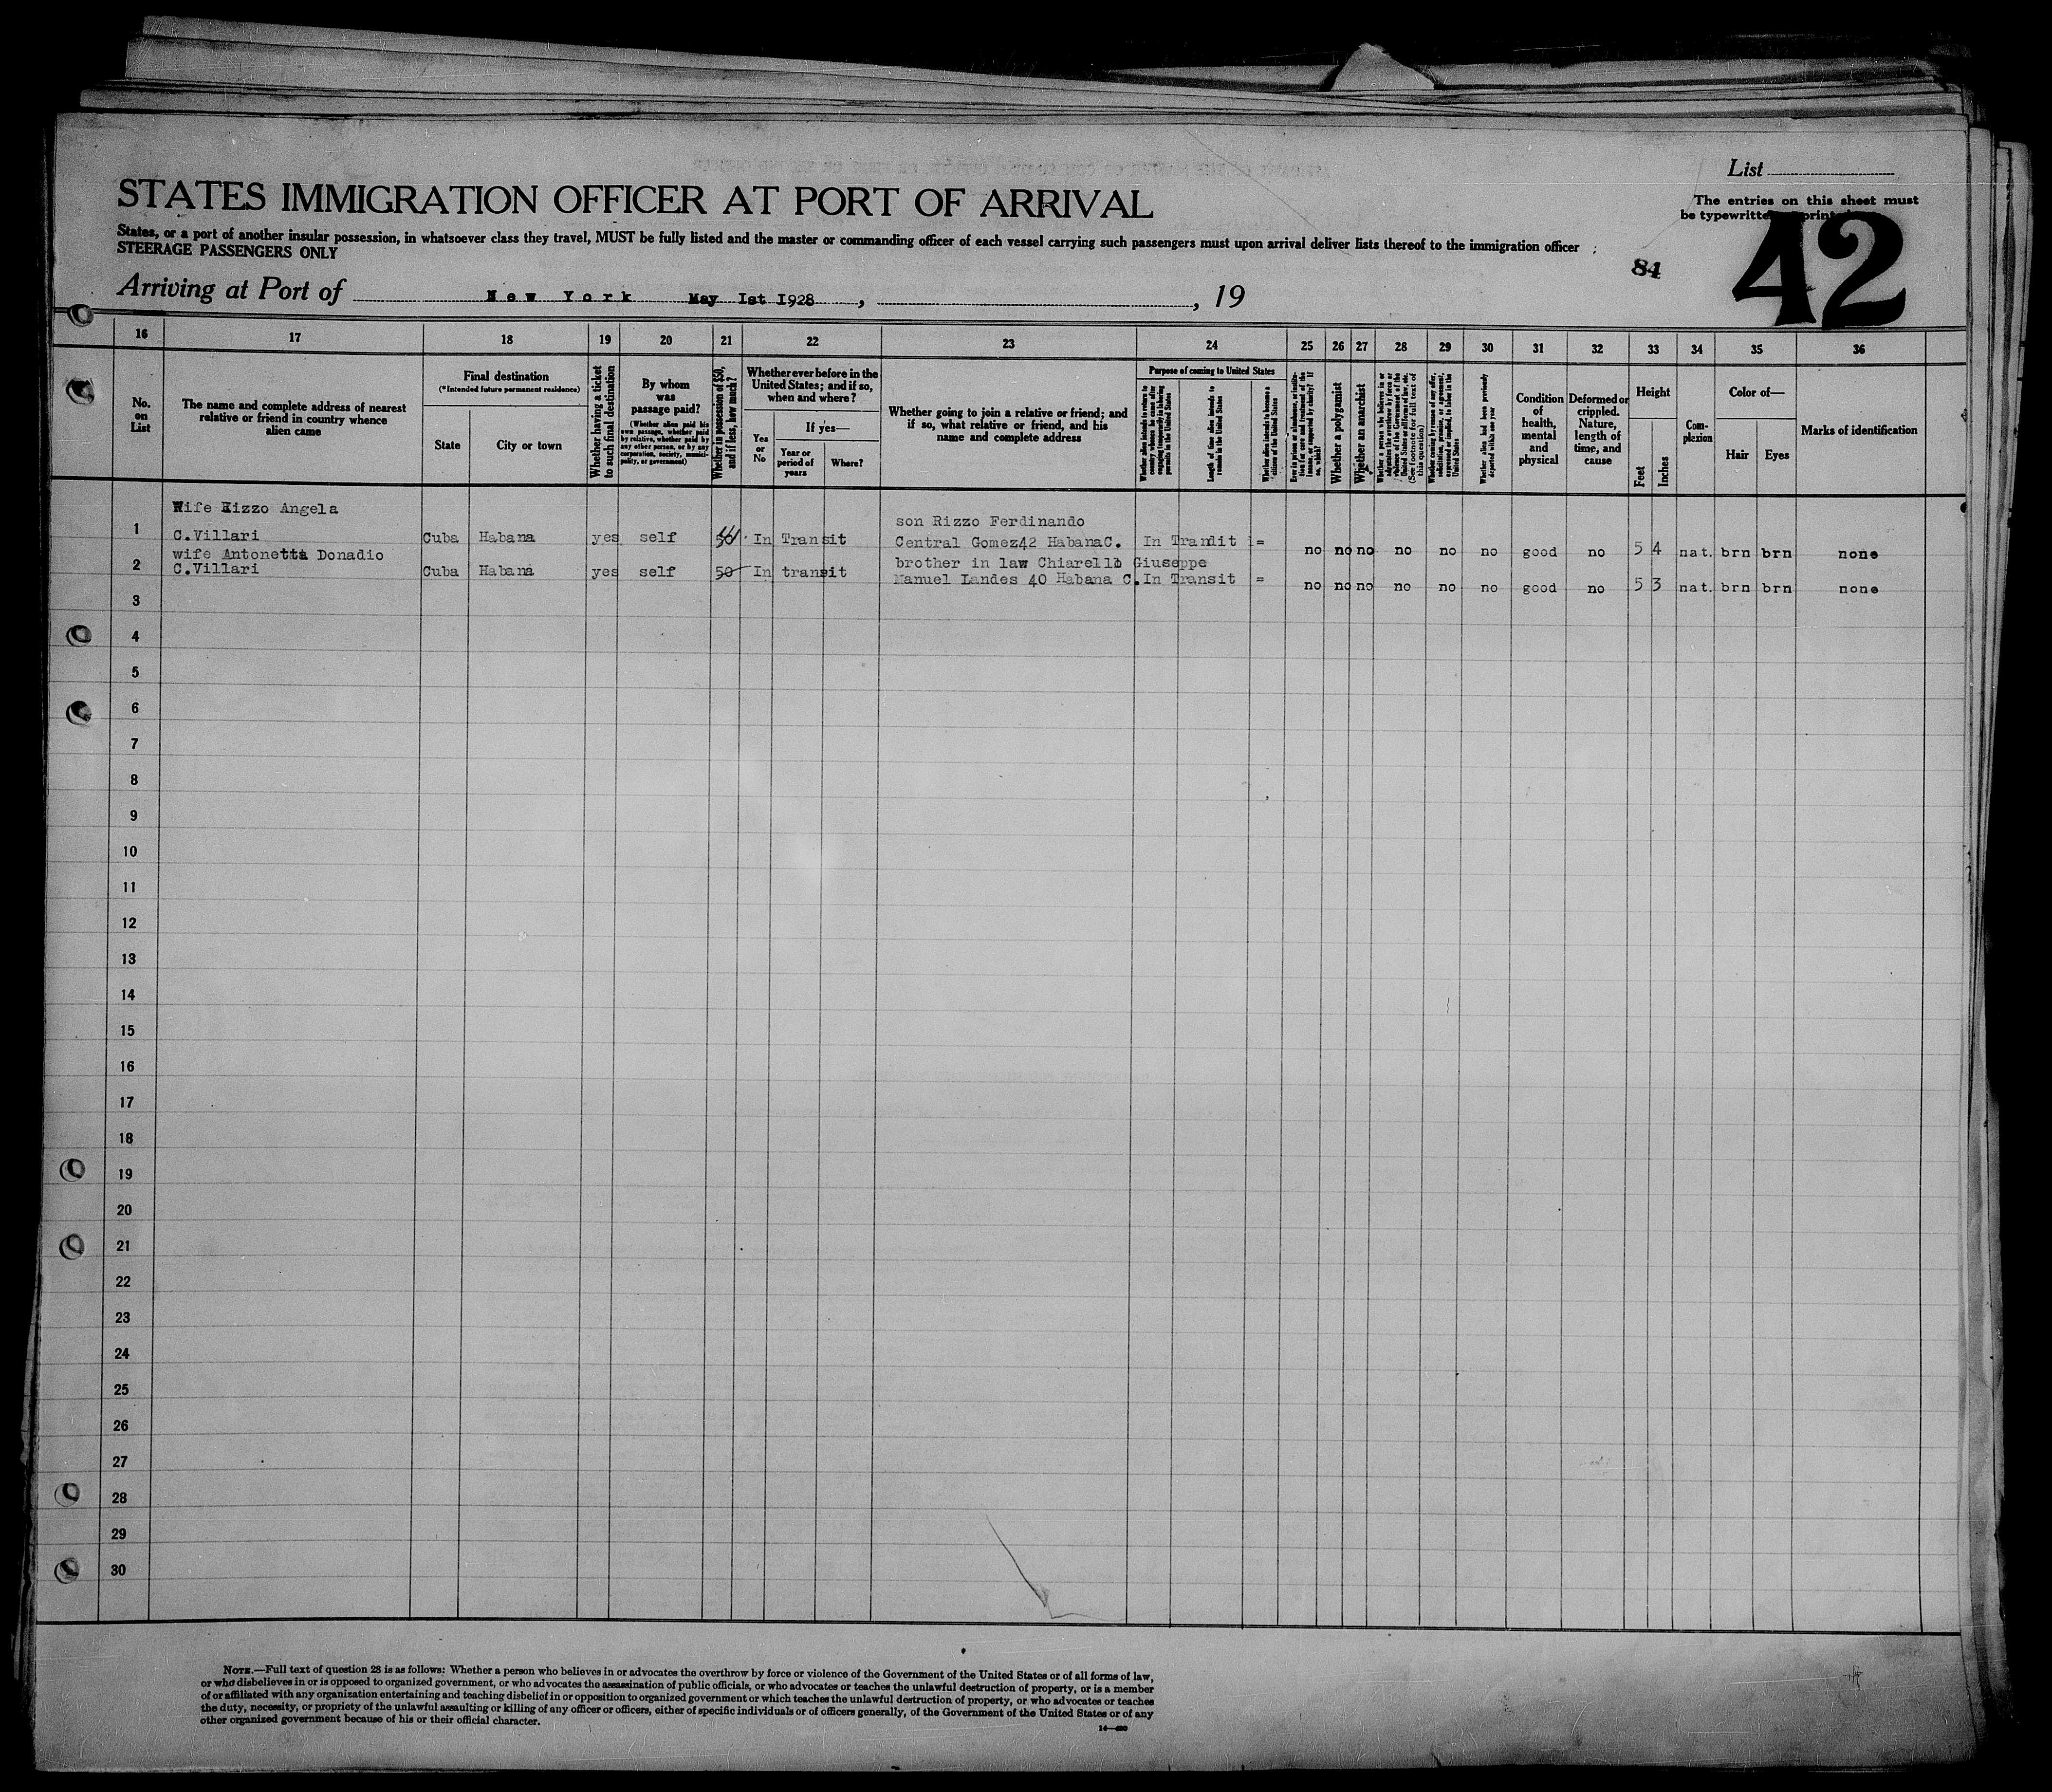 List
STATES IMMIGRATION OFFICER AT PORT OF ARRIVAL
The entries on this sheet must
be typewritten
States, or a port of another insular possession, in whatsoever class they travel, MUST be fully listed and the master or commanding officer of each vessel carrying such passengers must upon arrival deliver lists thereof to the immigration officer
STEERAGE PASSENGERS ONLY
84
42
Arriving at Port of New York May Ist I928, , 19
16 17 18 19 20 21 22 23 24 25 26 27 28 29 30 31 32 33 34 35 36
No. on List
The name and complete address of nearest relative or friend in country whence alien came
Final destination
(*Intended future permanent residence)
State
City or town
Whether having a ticket to such final destination
By whom was passage paid?
(Whether alien paid his own passage, whether paid by relative, whether paid by any other person, or by any corporation, society, municipality, or government)
Whether in possession of $50, and if less, how much?
Whether ever before in the United States; and if so, when and where?
Yes or No
If yes—
Year or period of years
Where?
Whether going to join a relative or friend; and if so, what relative or friend, and his name and complete address
Purpose of coming to United States
Whether alien intends to return to country whence he came after engaging temporarily in laboring pursuits in the United States
Length of time alien intends to remain in the United States
Whether alien intends to become a citizen of the United States
Ever in prison or almshouse, or institution for care and treatment of the insane, or supported by charity? If so, which?
Whether a polygamist
Whether an anarchist
Whether a person who believes in or advocates the overthrow by force or violence of the Government of the United States or all forms of law, etc. (See footnote for full text of this question)
Whether coming by reason of any offer, solicitation, promise, or agreement, expressed or implied, to labor in the United States
Whether alien had been previously deported within one year
Condition of health, mental and physical
Deformed or crippled. Nature, length of time, and cause
Height
Feet
Inches
Com-plexion
Color of—
Hair
Eyes
Marks of identification
Wife Rizzo Angela
son Rizzo Ferdinando
1 C.Villari Cuba Habana yes self In Transit Central Gomez42 HabanaC. In Trandit = no no no no no no good no 5 4 nat. brn brn none
wife Antonetta Donadio
brother in law Chiarello Giuseppe
2 C.Villari Cuba Habana yes self 50 In transit Manuel Landes 40 Habana C. In Transit = no no no no no no good no 5 3 nat. brn brn none
3
4
5
6
7
8
9
10
11
12
13
14
15
16
17
18
19
20
21
22
23
24
25
26
27
28
29
30
NOTE.—Full text of question 28 is as follows: Whether a person who believes in or advocates the overthrow by force or violence of the Government of the United States or of all forms of law,
or who disbelieves in or is opposed to organized government, or who advocates the assassination of public officials, or who advocates or teaches the unlawful destruction of property, or is a member
of or affiliated with any organization entertaining and teaching disbelief in or opposition to organized government or which teaches the unlawful destruction of property, or who advocates or teaches
the duty, necessity, or propriety of the unlawful assaulting or killing of any officer or officers, either of specific individuals or of officers generally, of the Government of the United States or of any
other organized government because of his or their official character.